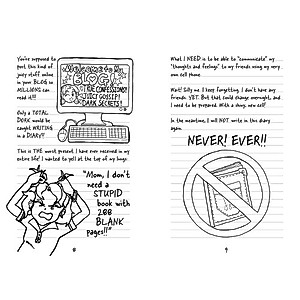 You're supposed to
post this kind of
juicy stuff online
in your BLOG so
MILLIONS can
read it!!!
Only a TOTAL
DORK would be
caught WRITING
in a DIARY!!!
Welcome to My
BLOG!
TRUE CONFESSIONS!
JUICY GOSSIP!
DARK SECRETS!
This is THE worst present I have ever received in my
entire life! I wanted to yell at the top of my lungs:
"Mom, I don't
need a STUPID
book with
288
BLANK
pages!!"
8
What I NEED is to be able to "communicate" my
"thoughts and feelings" to my friends using my very
own cell phone.
Wait! Silly me. I keep forgetting. I don't have any
friends. YET. But that could change overnight, and I
need to be prepared. With a shiny, new cell!
In the meantime, I will NOT write in this diary
again.
NEVER! EVER!!
9